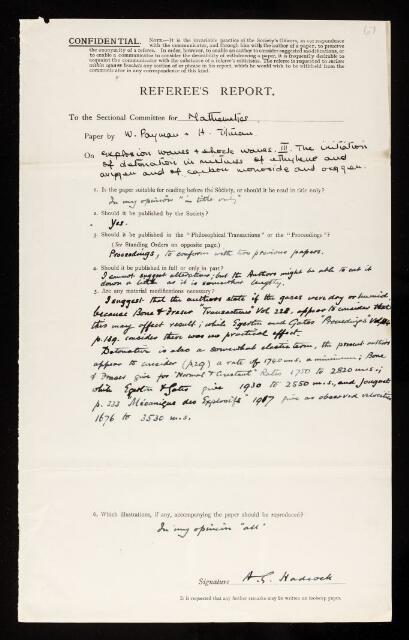 61
CONFIDENTIAL. NOTE.—It is the invariable practice of the Society's Officers, in correspondence
with the communicator, and through him with the author of a paper, to preserve
the anonymity of a referee. In order, however, to enable an author to consider suggested modifications, or
to enable a communicator to consider the desirability of withdrawing a paper, it is frequently desirable to
acquaint the communicator with the substance of a referee's criticisms. The referee is requested to enclose
within square brackets any section of or phrase in his report, which he would wish to be withheld from the
communicator in any correspondence of this kind.
REFEREE'S REPORT.
To the Sectional Committee for Mathematics
Paper by W. Payman & H. Titman
On explosion waves & shock waves. III. The initiation
of detonation in mixtures of ethylene and
oxygen and of carbon monoxide and oxygen.
1. Is the paper suitable for reading before the Society, or should it be read in title only?
In my opinion "in title only"
2. Should it be published by the Society?
Yes.
3. Should it be published in the "Philosophical Transactions" or the "Proceedings"?
(See Standing Orders on opposite page.)
Proceedings, to conform with two previous papers.
4. Should it be published in full or only in part?
I cannot suggest alterations; but the Authors might be able to cut it
down a little as it is somewhat lengthy.
5. Are any material modifications necessary?
I suggest that the authors state if the gases were dry or humid
because Bone & Fraser Transactions Vol 228. appear to consider that
this may affect result; while Egerton and Gates "Proceedings"
p. 139. consider there was no practical effect.
Detonation is also a somewhat elastic term, the present authors
appear to consider (p29) a rate of 1740 m.s. a minimum; Bone
& Fraser give for "Normal & Constant" Rates 1750 to 2820 m.s.;
while Egerton & Gates give 1930 to 2550 m.s, and Jouguet
p. 333 "Mécanique des Explosifs" 1917 give as observed velocities
1676 to 3530 m.s.
6. Which illustrations, if any, accompanying the paper should be reproduced?
In my opinion "all"
Signature A. G. Hadcock
It is requested that any further remarks may be written on foolscap paper.